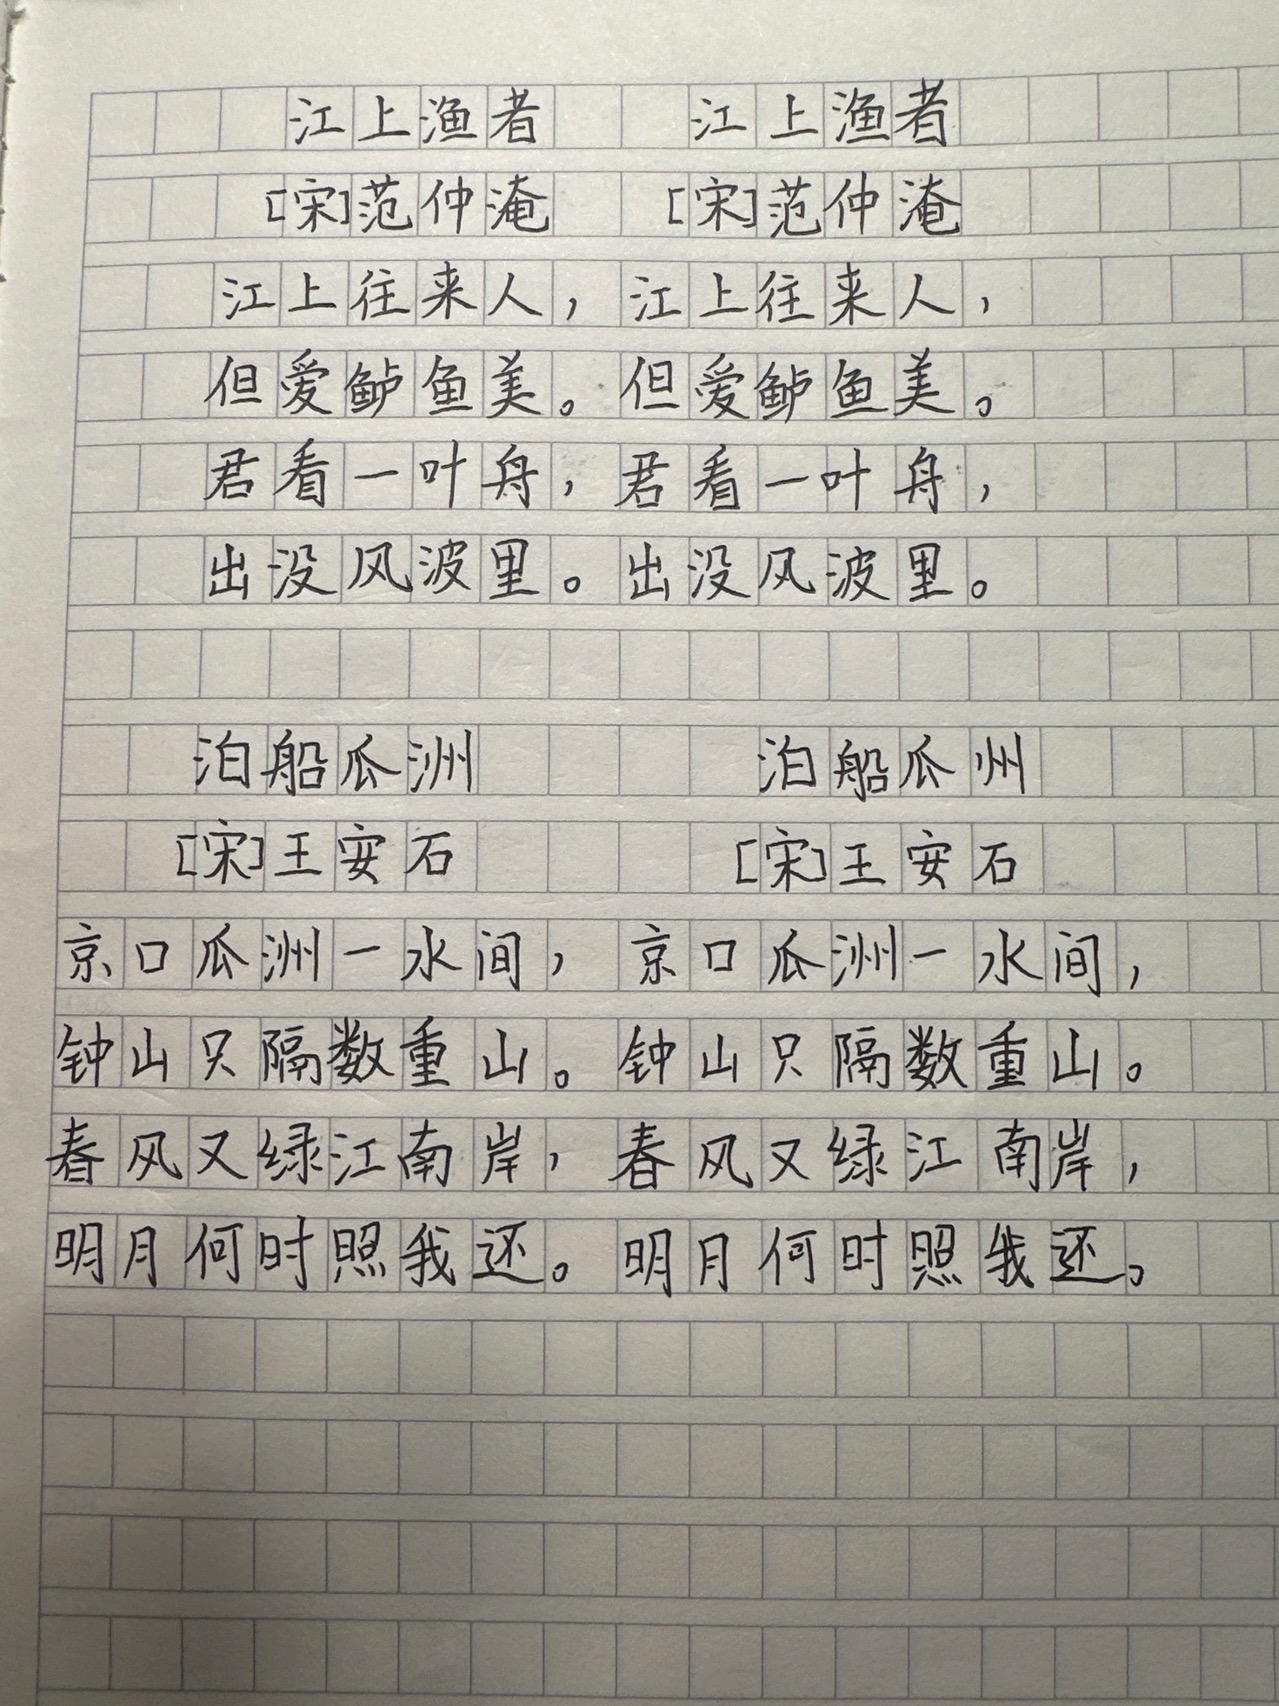 江上渔者 江上渔者
[宋]范仲淹 [宋]范仲淹
江上往来人，江上往来人，
但爱鲈鱼美。但爱鲈鱼美。
君看一叶舟，君看一叶舟，
出没风波里。出没风波里。
泊船瓜洲 泊船瓜州
[宋]王安石 [宋]王安石
京口瓜洲一水间，京口瓜洲一水间，
钟山只隔数重山。钟山只隔数重山。
春风又绿江南岸，春风又绿江南岸，
明月何时照我还。明月何时照我还。